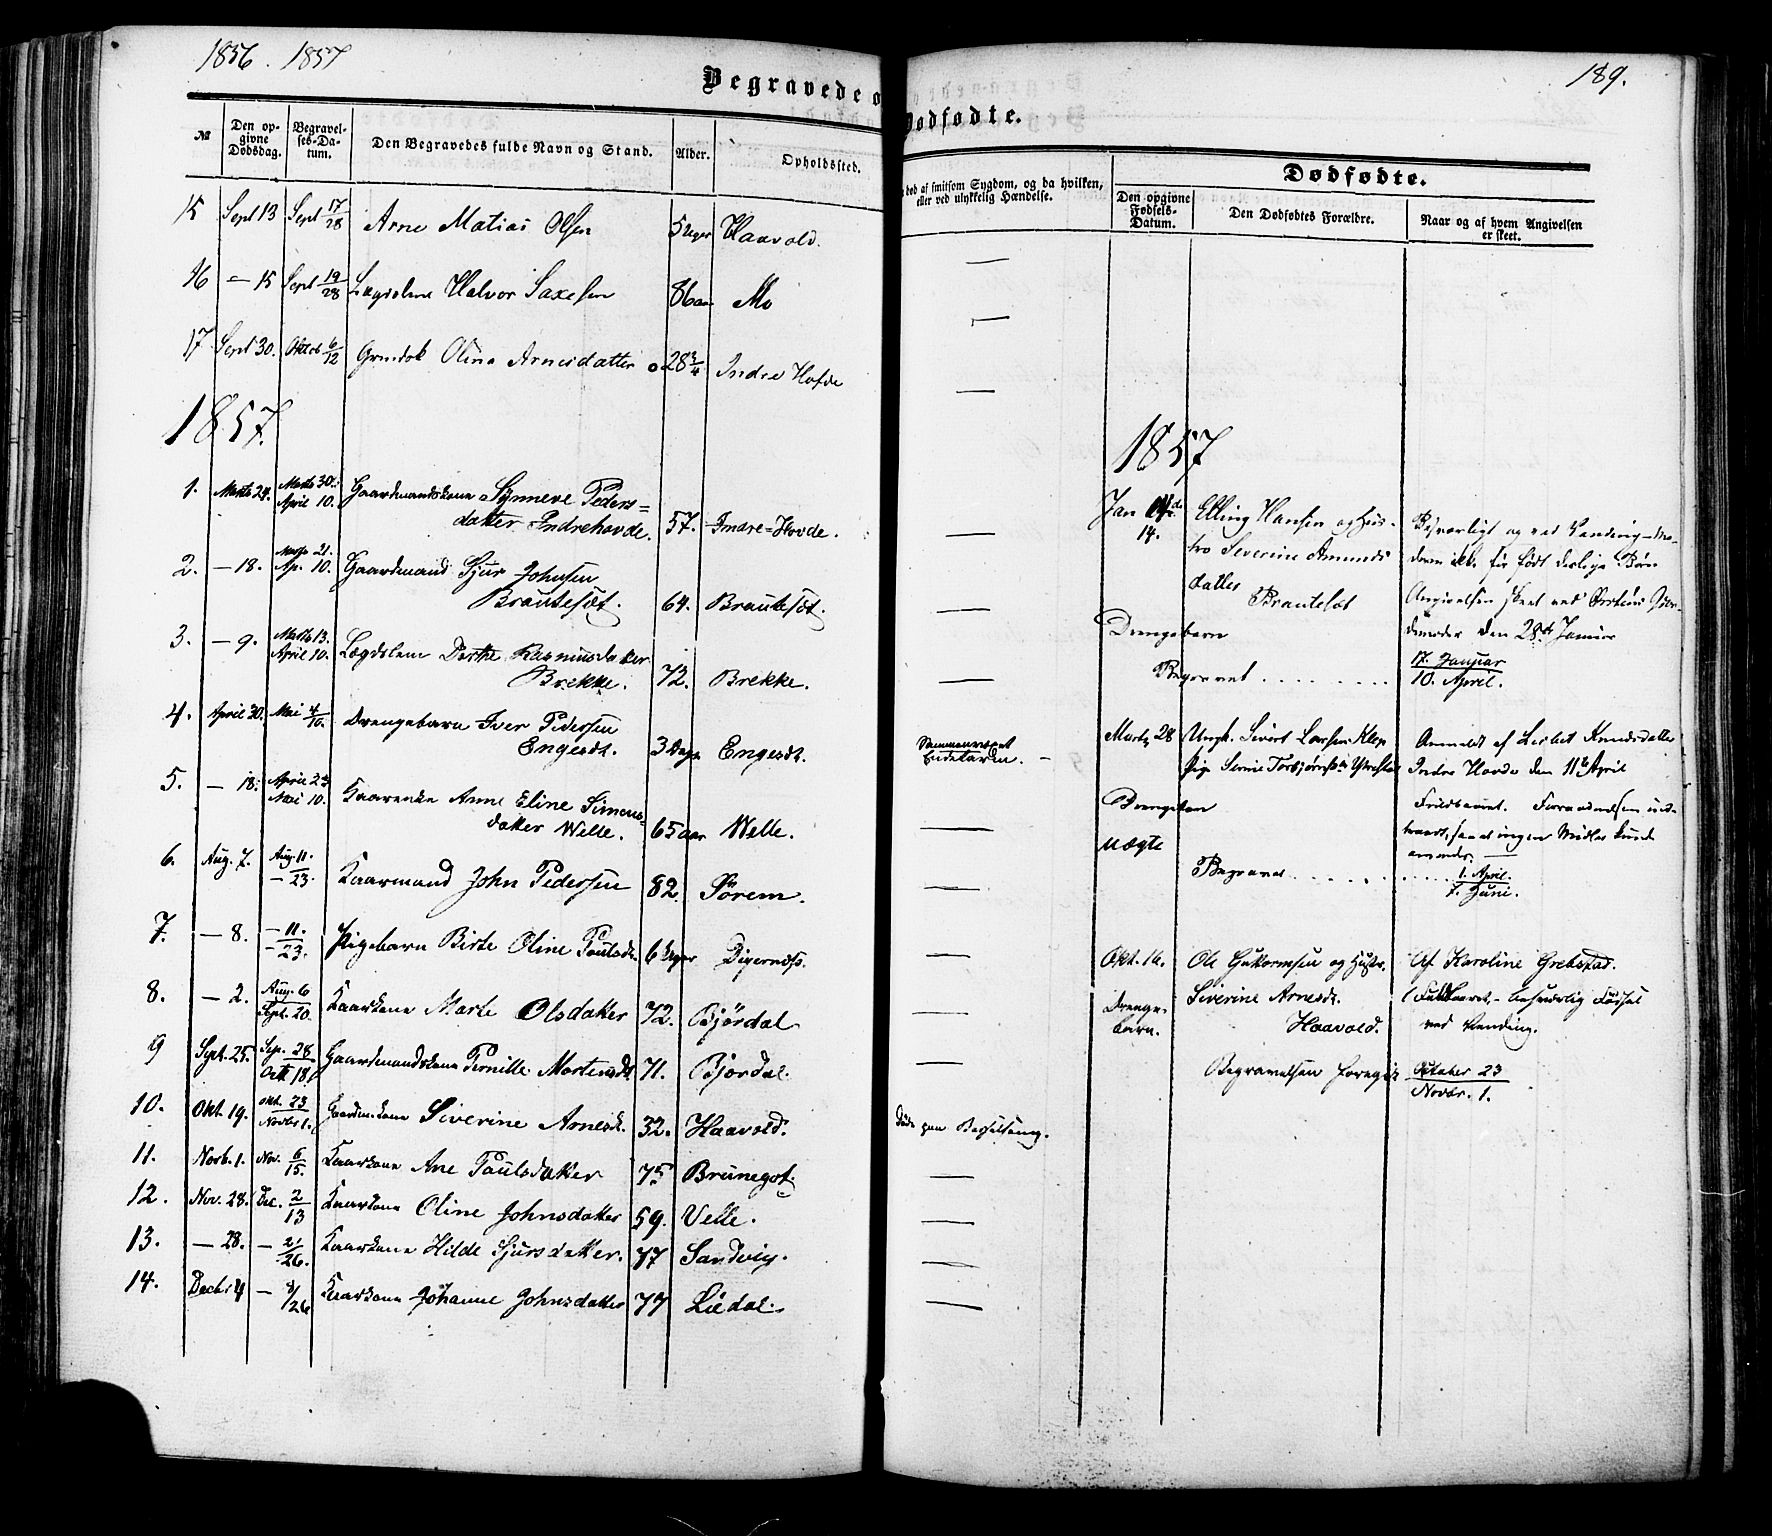 1856. 1857
Begravede o
№
Den opgivne Dødsdag.
Begravelses-Datum.
Den Begravedes fulde Navn og Stand.
Alder.
Opholdssted.
15 Sept 13 Sept 17/28 Arne Matias Olsen 5 Uger Haavold.
16 — 15 Sept 19/28 Lægdslem Halvor Saxesen 86 aar Mo
17 Sept 30. Oktob 6/12 Olina Arnesdatter 28 3/4 Indre Hofde
1857.
1. Marts 24. Marts 30. April 10. Gaardmandskone Synneve Peders=
datter Indrehovde. 57. Indre=Hovde.
2. — 18. Marts 21. Ap. 10. Gaardmand Sjur Johnsen
Brautesæt. 64. Brautesæt.
3. — 9. Marts 13. April 10. Lægdslem Dorthe Rasmusdatter
Brekke. 72. Brekke.
4. April 30. Mai 4/10. Drengebarn Iver Pedersen
Engesæt. 3 Dage Engesæt.
5. — 18. April 23 Mai 10. Kaarenke Anne Eline Simons=
datter Welle. 65 aar Welle.
6. Aug. 7. Aug. 11. — 23. Kaarmand John Pedersen 82. Sørem.
7. — 8. — 11. — 23. Pigebarn Birte Oline Paulsd. 6 Uger Digernæss.
8. — 2. Aug. 6 Sept. 20. Kaarkone Marte Olsdatter 72. Bjørdal
9 Sept. 25. Sep. 28 Okt 18. Gaardmandskone Pernille Mortensdt 71. Bjørdal.
10. Okt. 19. Okt. 23 Novbr 1. Gaardm.kone Siverine Arnesdt. 32. Haavold.
11. Novb. 1. Nov. 6/15. Kaarkone Ane Paulsdatter 75 Brunegot.
12. Nov. 28. Dec. 2/13 Kaarkone Oline Johnsdatter 59. Velle.
13. — 28. — 21/26. Kaarkone Hilde Sjursdatter. 77 Sandvig.
14. Decbr 4 — 8/26 Kaarkone Johanne Johnsdatter 77 Liedal.
189.
Dødfødte.
død af smitsom Sygdom, og da hvilken,
eller ved ulykkelig Hændelse.
Dødfødte.
Den opgivne Fødsels-Datum.
Den Dødfødtes Forældre.
Naar og af hvem Angivelsen er skeet.
1857
Jan 14. Elling Hansen og Hus-
tro Severine Amunds
datter
Brautesæt
Drengebarn
Besværligt og ved Vending — Mo-
deren ikke før født deslige Børn
Angivelsen skeet ved Jor-
demoder den 28de Januar
Begravet . . . . . . . . 17. Januar
10. April.
Marts 28 Ungk. Sivert Larsen Klep
Pige Serine Torbjørnsdtr Ytrestad
Drengebarn
Uægte
Anmeldt af Lisbet Knudsdatter
Indre Hovde den 11te April
Fuldbaaret.
saa at ingen Midler kunde
anvendes.
Begraved . . . . . . . . . . . 1. April.
7. Juni.
Sammenvoxet
Endetarm. —
Okt. 16. Ole Guttormsen og Hustr.
Siverine Arnesdt.
Haavold.
Drenge-
barn.
Af Karoline Grebstad.
Fuldbaaret, — besværlig Fødsel
ved Vending.
Begravelsen foregik Oktober 23
Novbr. 1.
Døde paa Barselseng.